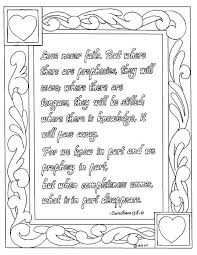 Love never fails. But where
there are prophecies, they will
cease; where there are
tongues, they will be stilled;
where there is knowledge, it
will pass away.
For we know in part and we
prophesy in part,
but when completeness comes,
what is in part disappears.
1 Corinthians 13:8-10